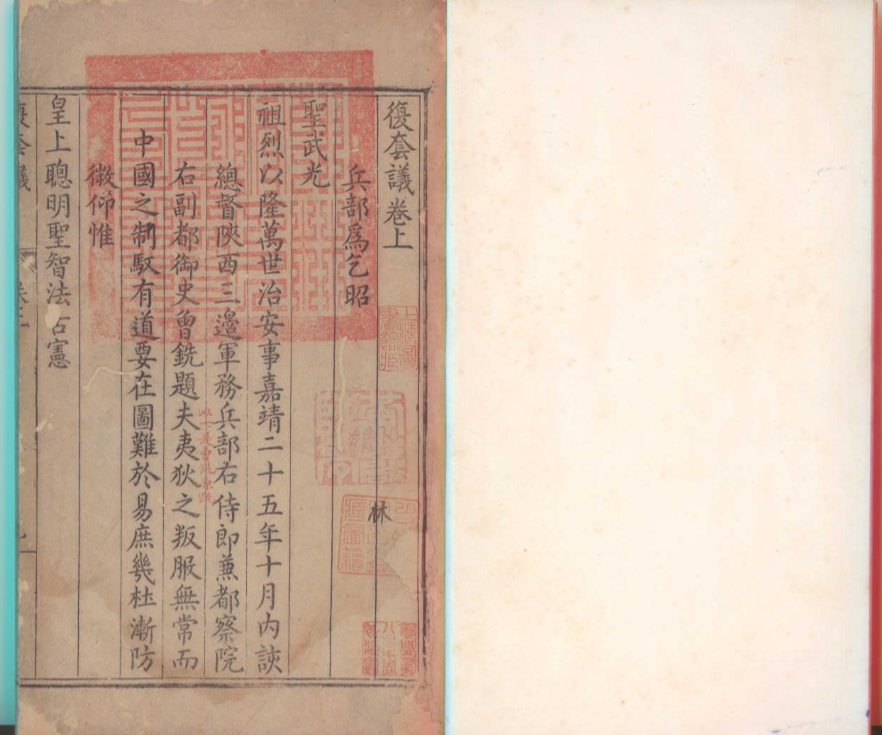 復套議卷上
兵部為乞昭
聖武光
祖烈以隆萬世治安事嘉靖二十五年十月內該
總督陝西三邊軍務兵部右侍郎兼都察院
右副都御史曾銑題夫夷狄之叛服無常而
中國之制馭有道要在圖難於易庶幾杜漸防
微仰惟
皇上聰明聖智法古憲
復套議
林